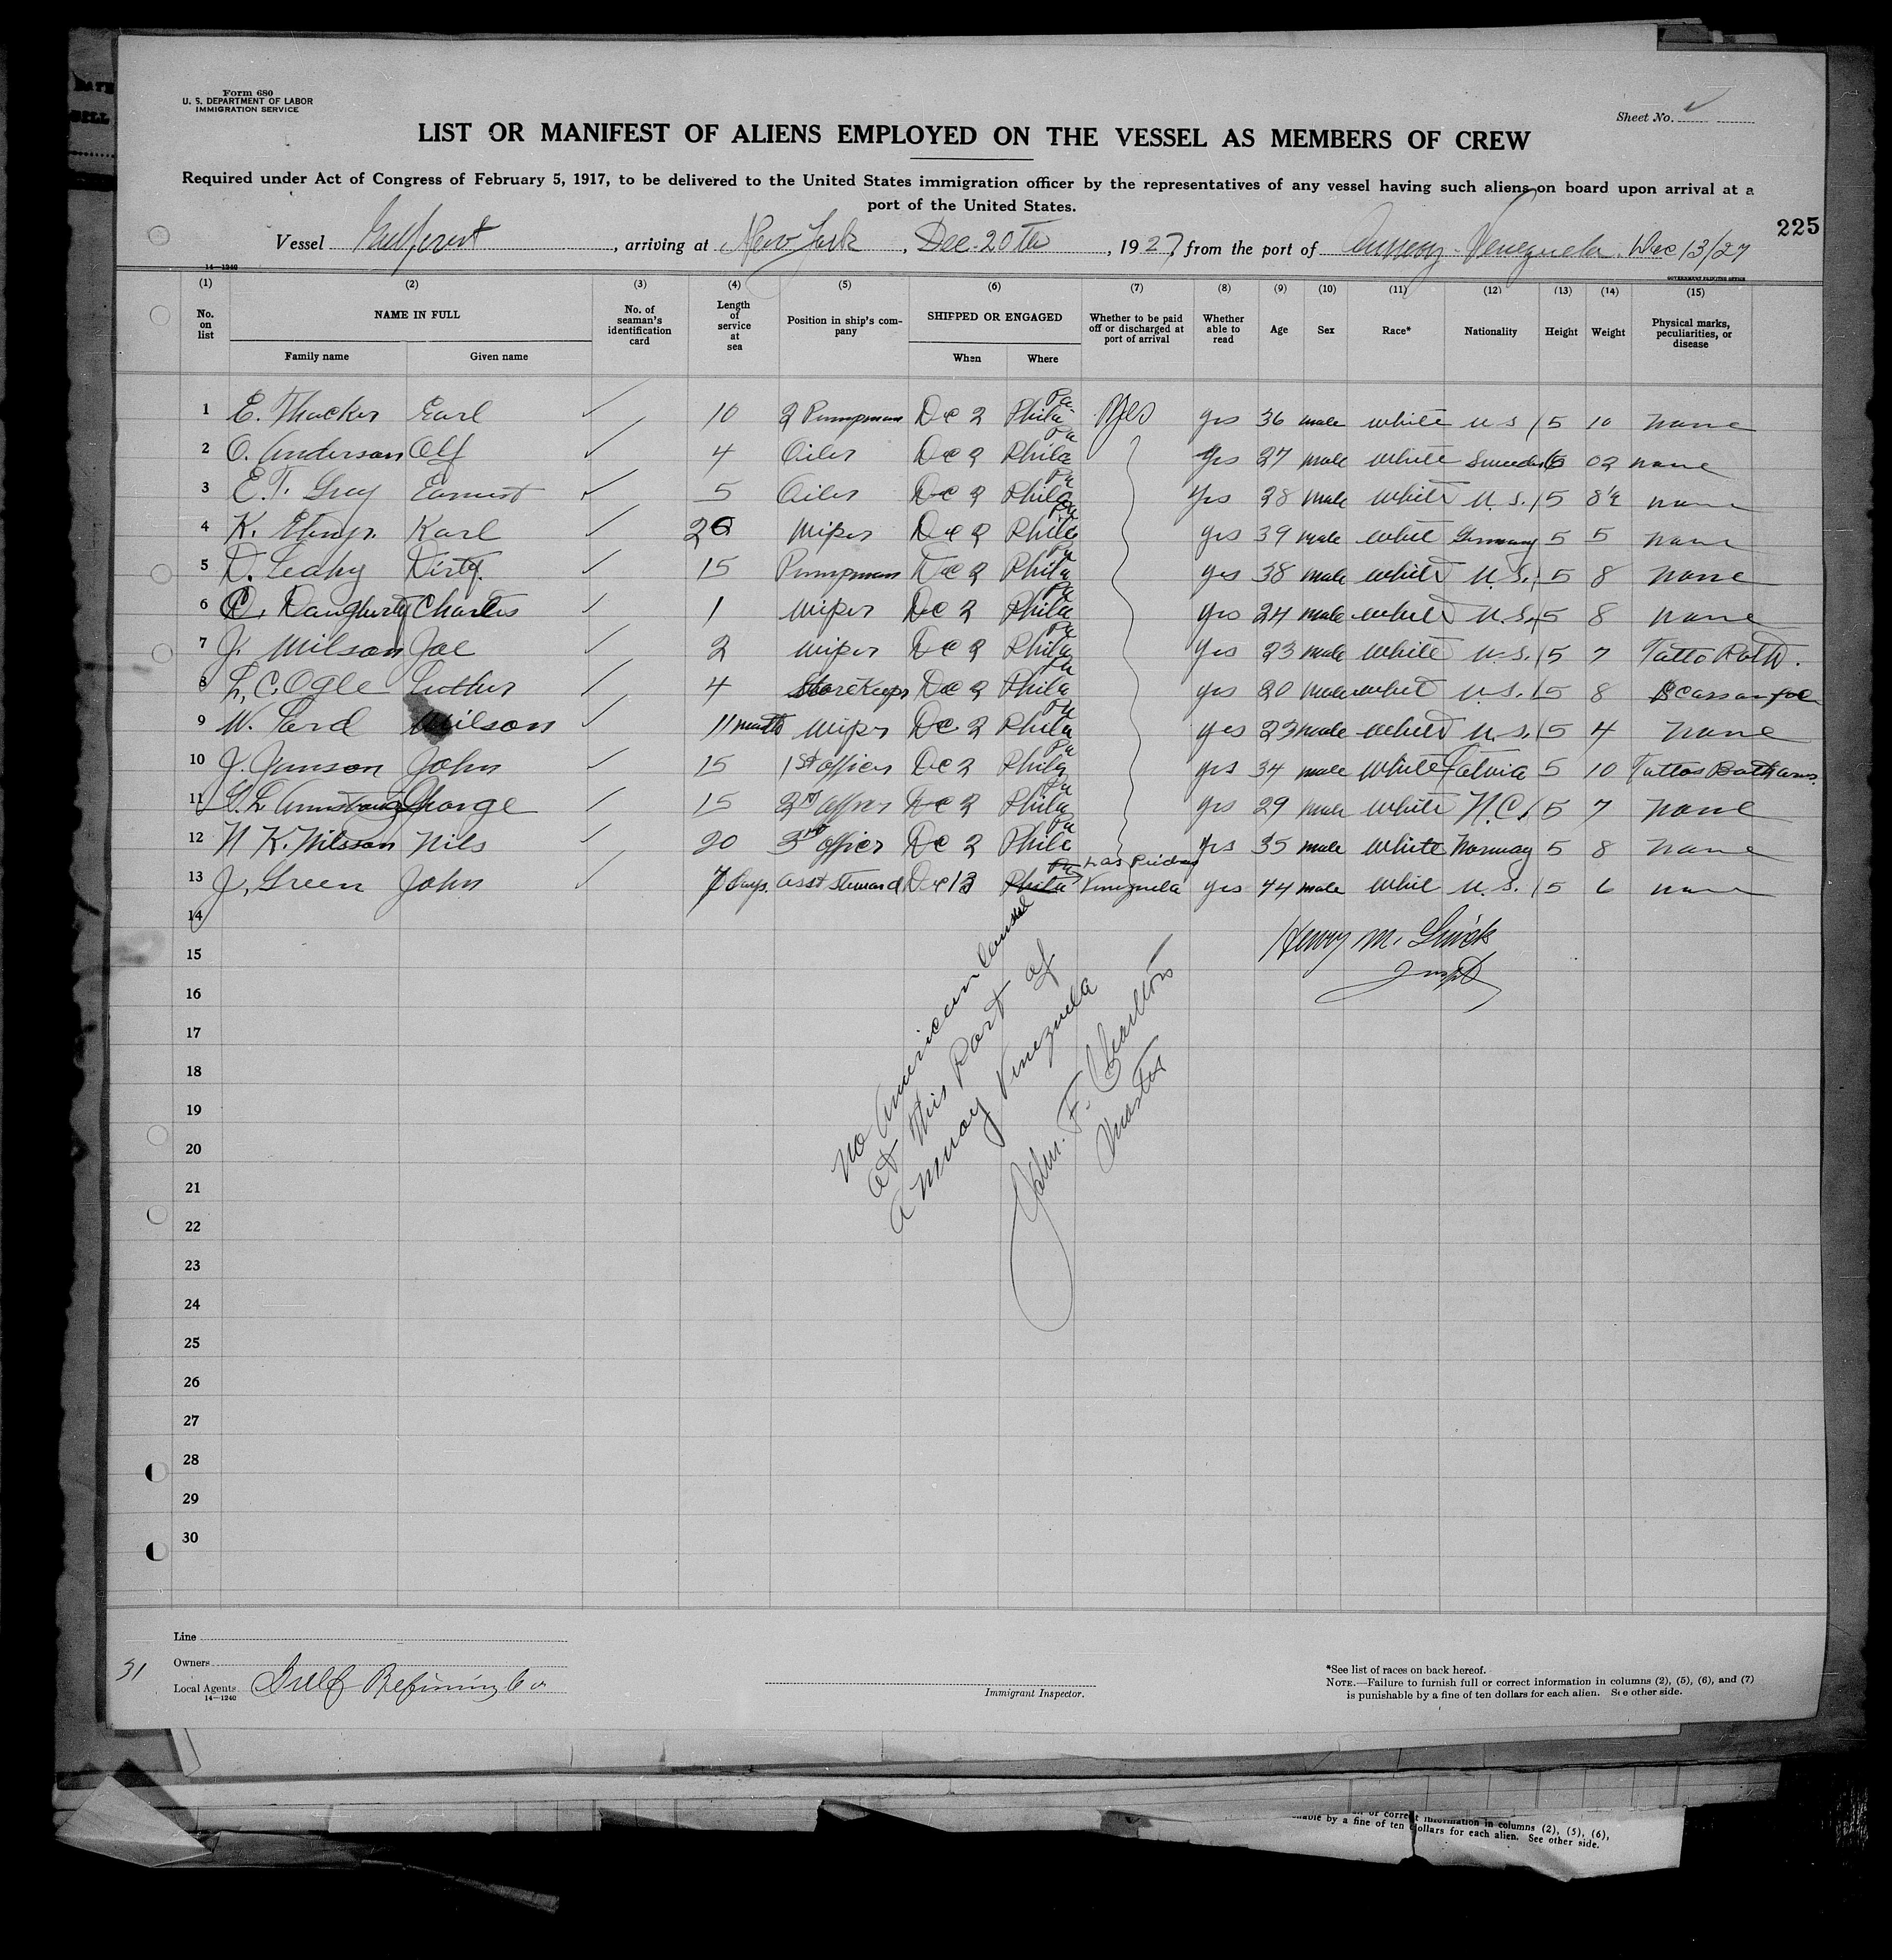 DATE
BILL
Form 680
U. S. DEPARTMENT OF LABOR
IMMIGRATION SERVICE
Sheet No.
LIST OR MANIFEST OF ALIENS EMPLOYED ON THE VESSEL AS MEMBERS OF CREW
Required under Act of Congress of February 5, 1917, to be delivered to the United States immigration officer by the representatives of any vessel having such aliens on board upon arrival at a
port of the United States.
225
Vessel Gulfcrest, arriving at New York, Dec. 20th, 1927, from the port of Amuay Venezuela. Dec 13/27
14—1240
GOVERNMENT PRINTING OFFICE
(1) (2) (3) (4) (5) (6) (7) (8) (9) (10) (11) (12) (13) (14) (15)
No. on list NAME IN FULL No. of seaman's identification card Length of service at sea Position in ship's company SHIPPED OR ENGAGED Whether to be paid off or discharged at port of arrival Whether able to read Age Sex Race* Nationality Height Weight Physical marks, peculiarities, or disease
Family name Given name When Where
1 E. Thacker Earl ✓ 10 2 Pumpman Dec 2 Phila Pa. yes yes 36 male white U S 5 10 none
2 O. Anderson Olf ✓ 4 Oiler Dec 2 Phila Pa yes 27 male white 02 none
3 E. T. Gray Earnest ✓ 5 Oiler Dec 2 Phila Pa yes 28 male white U. S. 5 8½ none
4 K. Karl ✓ 20 wiper Dec 2 Phila Pa yes 39 male white Germany 5 5 none
5 D. Leahy Dirty. 15 Pumpman Dec 2 Phila Pa yes 38 male white U. S. 5 8 none
6 C. Daugherty Charles ✓ 1 wiper Dec 2 Phila Pa yes 24 male white U. S. 5 8 none
7 J. Wilson Joe ✓ 2 wiper Dec 2 Phila Pa yes 23 male white U. S. 5 7 Tatto
8 L, C. Ogle Luther ✓ 4 Storekeepr Dec 2 Phila Pa yes 20 male white U. S. 5 8 Scar on
9 W. Lard Wilson ✓ 11 months wiper Dec 2 Phila Pa yes 23 male white U. S. 5 4 none
10 J. Janson John ✓ 15 1st officer Dec 2 Phila Pa yes 34 male white Latvia 5 10 Tattos Both arms
11 Armstrong George ✓ 15 2nd officer Dec 2 Phila Pa yes 29 male white 5 7 none
12 N K. Nilsson Nils ✓ 20 3rd officer Dec 2 Phila Pa yes 35 male white Norway 5 8 none
13 J. Green John ✓ 7 days. asst steward Dec 13 Phila Pa Las Piedras Venezuela yes 44 male white U. S. 5 6 none
14
15
16
17
18
19
20
21
22
23
24
25
26
27
28
29
30
Henry M.
Inspt
no American Consul
at this Port of
Amuay Venezuela
John. F. Charlton
Master
Line
Owners
Local Agents Gulf Refining Co
14—1240
31
Immigrant Inspector.
*See list of races on back hereof.
NOTE.—Failure to furnish full or correct information in columns (2), (5), (6), and (7)
is punishable by a fine of ten dollars for each alien. See other side.
or correct information in columns (2), (5), (6),
by a fine of ten dollars for each alien. See other side.